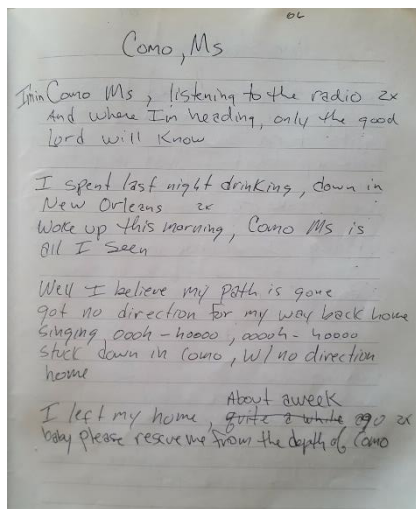 06
Como, Ms
I'm in Como Ms, listening to the radio 2x
And where I'm heading, only the good
Lord will Know
I spent last night drinking, down in
New Orleans 2x
Woke up this morning, Como Ms is
all I seen
Well I believe my path is gone
got no direction for my way back home
singing oooh-hoooo, ooooh-hoooo
stuck down in Como, w/ no direction
home
About a week
I left my home, quite a while ago 2x
baby please rescue me from the depth of Como